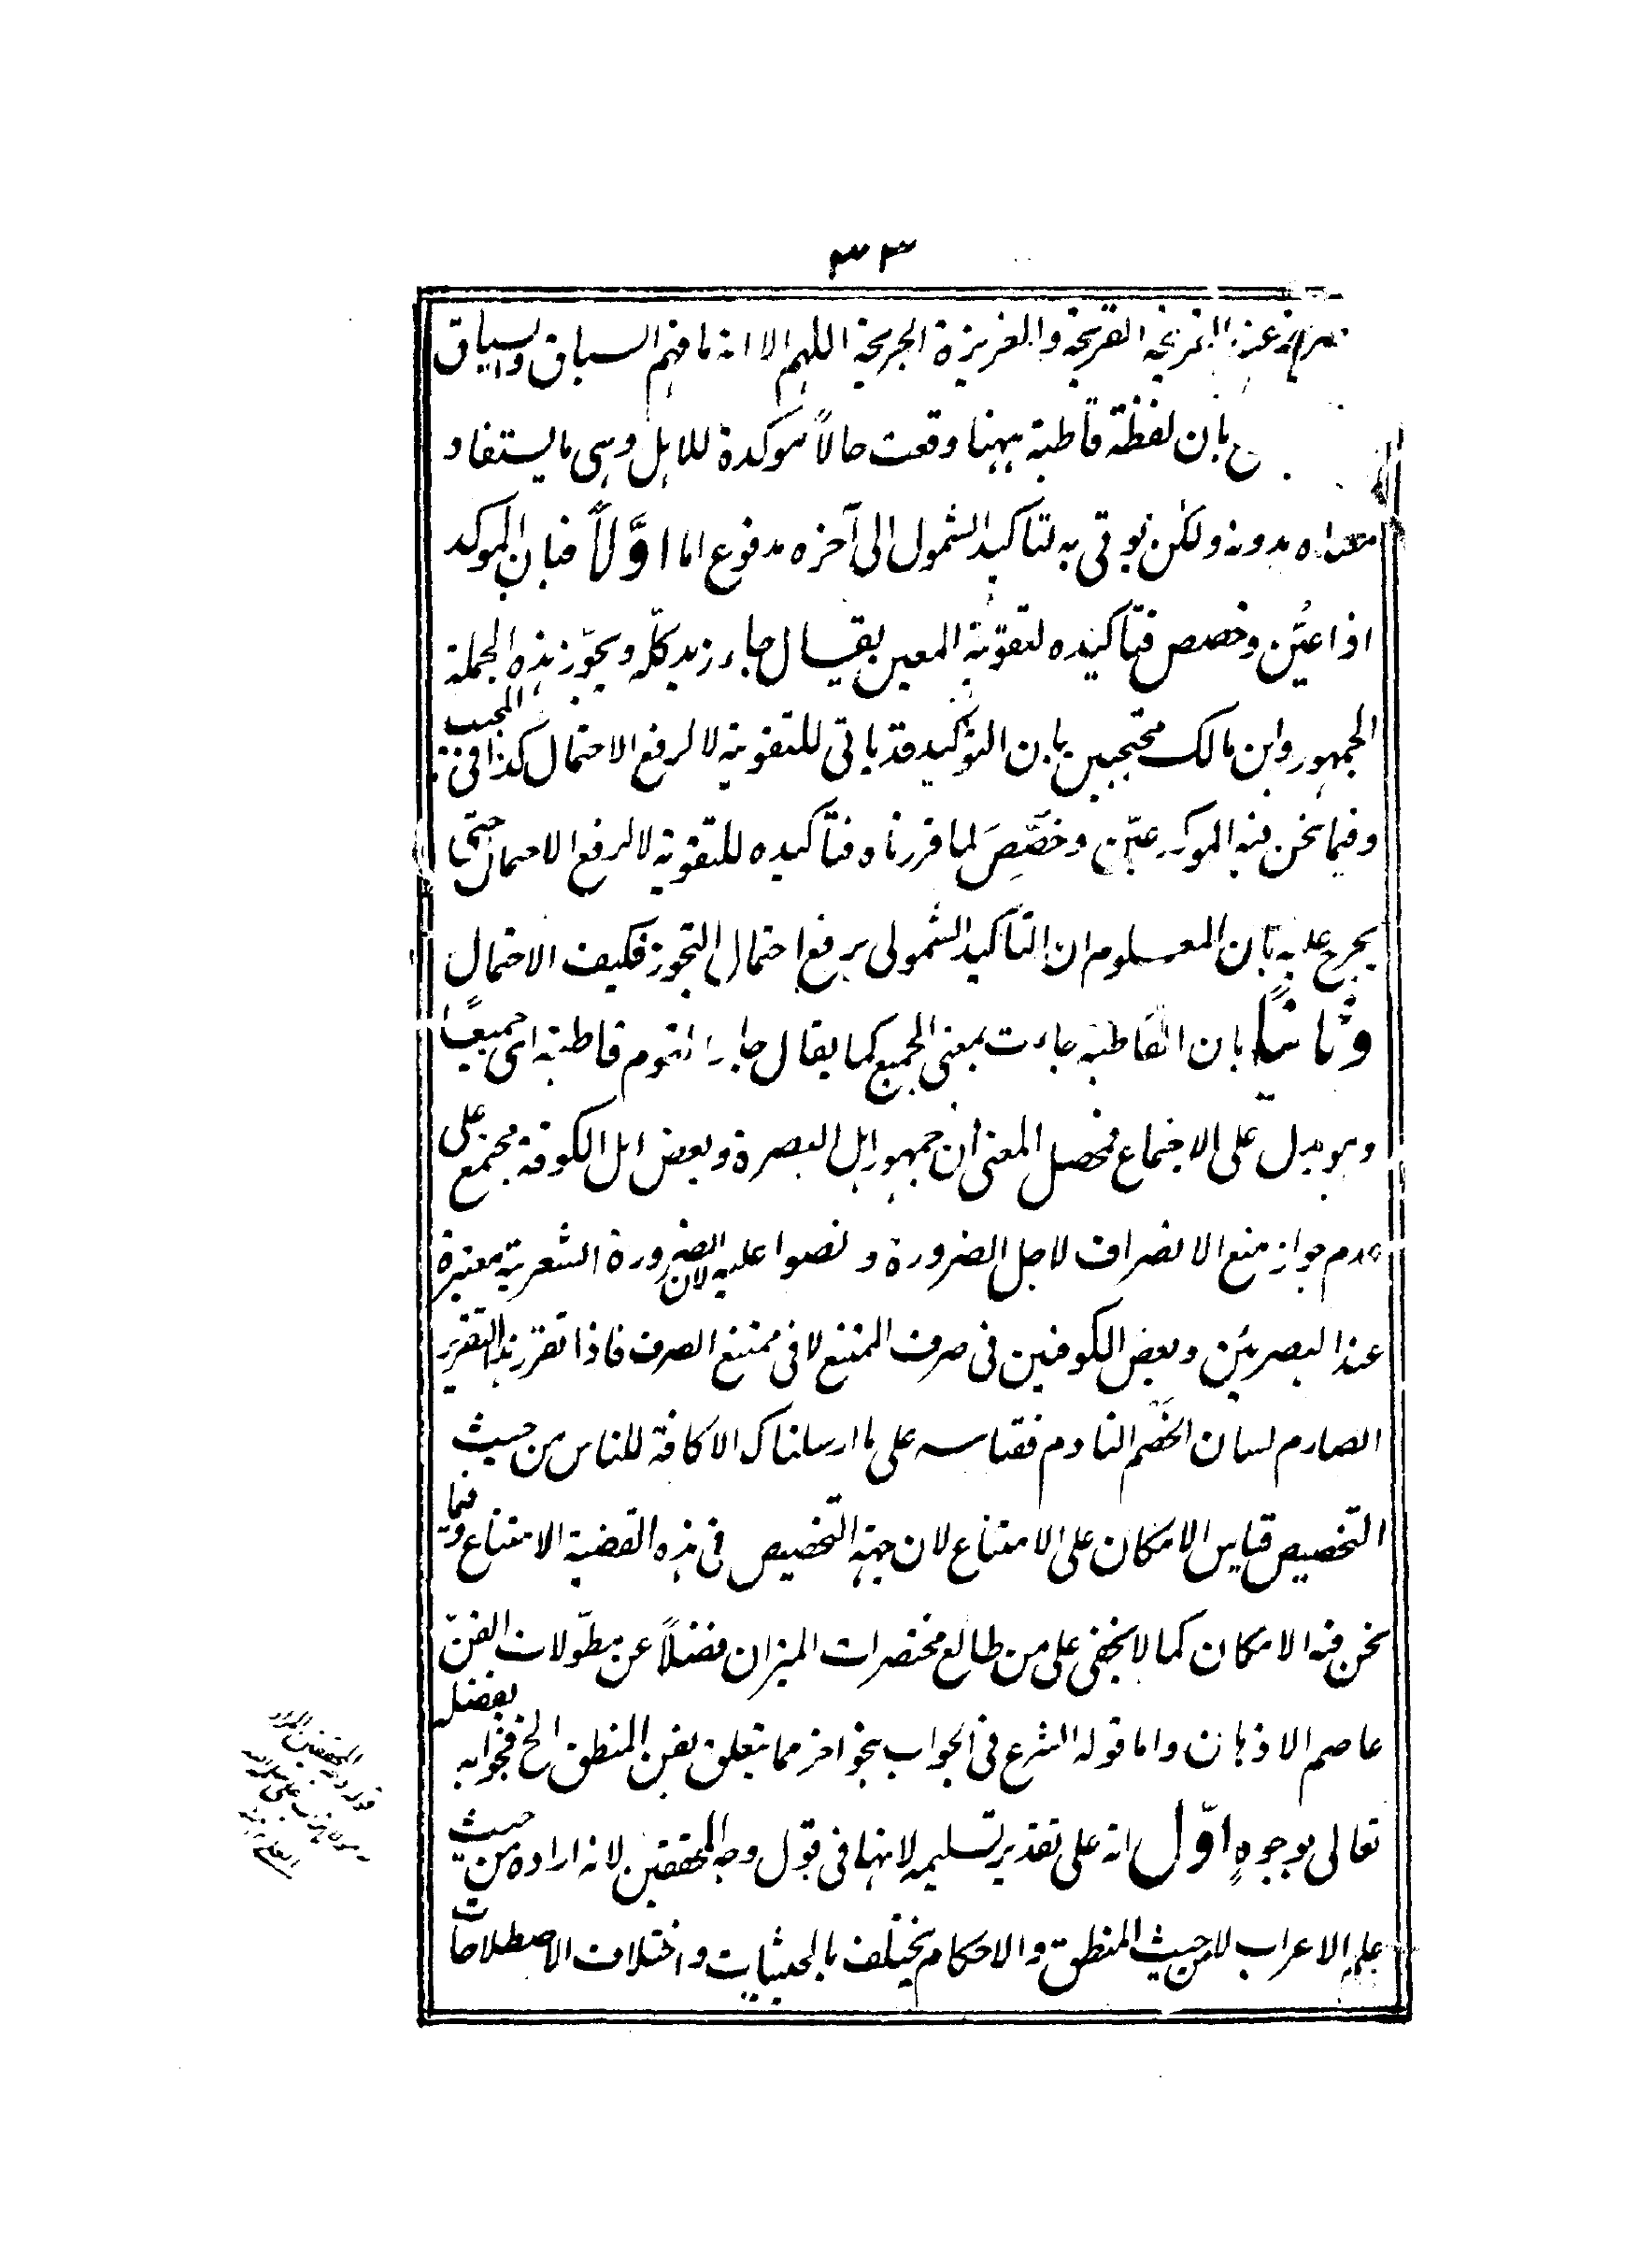 ٣٣
القريحة والغريزة الجريحة اللهم الا انه ما فهم السباق والسياق
بان لفظة قاطبة ههنا وقعت حالاً موكدة للاهل وهى ما يستفاد
معناه بدونه ولكن يوتى به لتاكيد الشمول الى آخره مدفوع اما اوَّلاً فبان الموكد
اذا عيّن وخصص فتاكيده لتقوية المعين يقال جاء زيد كلّه ويجوّز هذه الجملة
الجمهور وابن مالك محتجين بان التوكيد قد ياتى للتقوية لا لرفع الاحتمال كذا فى المجيب
وفيما نحن فيه الموكد عيّن وخصّصَ لما قررناه فتاكيده للتقوية لا لرفع الاحتمال حتى
يجرح عليه بان المعلوم ان التاكيد الشمولى يرفع احتمال التجوز فكيف الاحتمال
وثانيًا بان القاطبة جاءت بمعنى الجميع كما يقال جاء القوم قاطبة اى جميعًا
وهو يدل على الاجتماع فمحصل المعنى ان جمهور اهل البصرة وبعض اهل الكوفة مجتمع على
عدم جواز منع الانصراف لاجل الضرورة ونصوا عليه لان الضرورة الشعرية معتبرة
عند البصريين وبعض الكوفيين فى صرف الممتنع لا فى ممتنع الصرف فاذا تقرر هذا التقرير
الصارم لسان الخصم النادم فقياسه على ما ارسلناك الا كافة للناس من حيث
التخصيص قياس الامكان على الامتناع لان جهة التخصيص فى هذه القضية الامتناع وفيما
نحن فيه الامكان كما لا يخفى على من طالع مختصرات الميزان فضلاً عن مطوّلات الفنّ
عاصم الاذهان واما قوله الشرع فى الجواب بنحو اخر مما يتعلق بفن المنطق الخ فجوابه بفضله
تعالى بوجوهٍ اوّل انه على تقدير تسليمه لانها فى قول وجه المحققين لانه اراده من حيث
علم الاعراب لا من حيث المنطق والاحكام يختلف بالحيثيات واختلاف الاصطلاحات